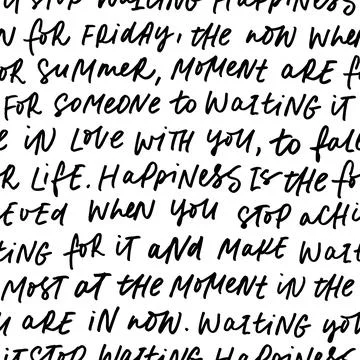 u STOP WAITING HAPPINESS
N for FRiDAY, the now when
OR SUMMER, MOMENT ARE f
FOR SOMEONE to WaiTiNG iT
e iN LOVE WiTH YOU, to fall
R LiFE. HAppiNESS IS the fo
EVED WHEN YOU STOP ACHi
TiNG for iT AND MAKE WAiT
MOST AT the MOMENT iN the
u ARE iN NOW. WAiTiNG you
iT STOP WAITING HAPPINESS